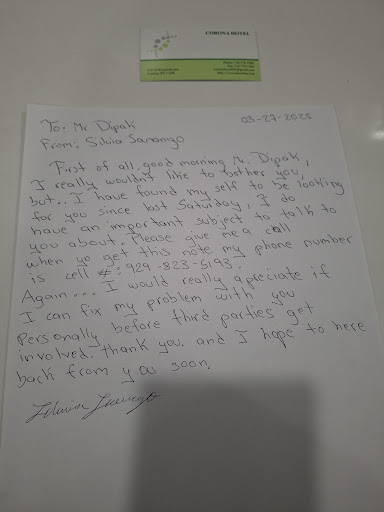 CORONA HOTEL
To: Mr Dipak
03-27-2025
From: Silvia Sananigo
First of all, good morning Mr. Dipak,
I really wouldn't like to bother you,
but.. I have found my self to be looking
for you since last Saturday, I do
have an important subject to talk to
you about. Please give me a call
when yo get this note my phone number
is cell #: 929-823-5193.
Again... I would really apreciate if
I can fix my problem with you
Personally before third parties get
involved. thank you. and I hope to here
back from you soon.